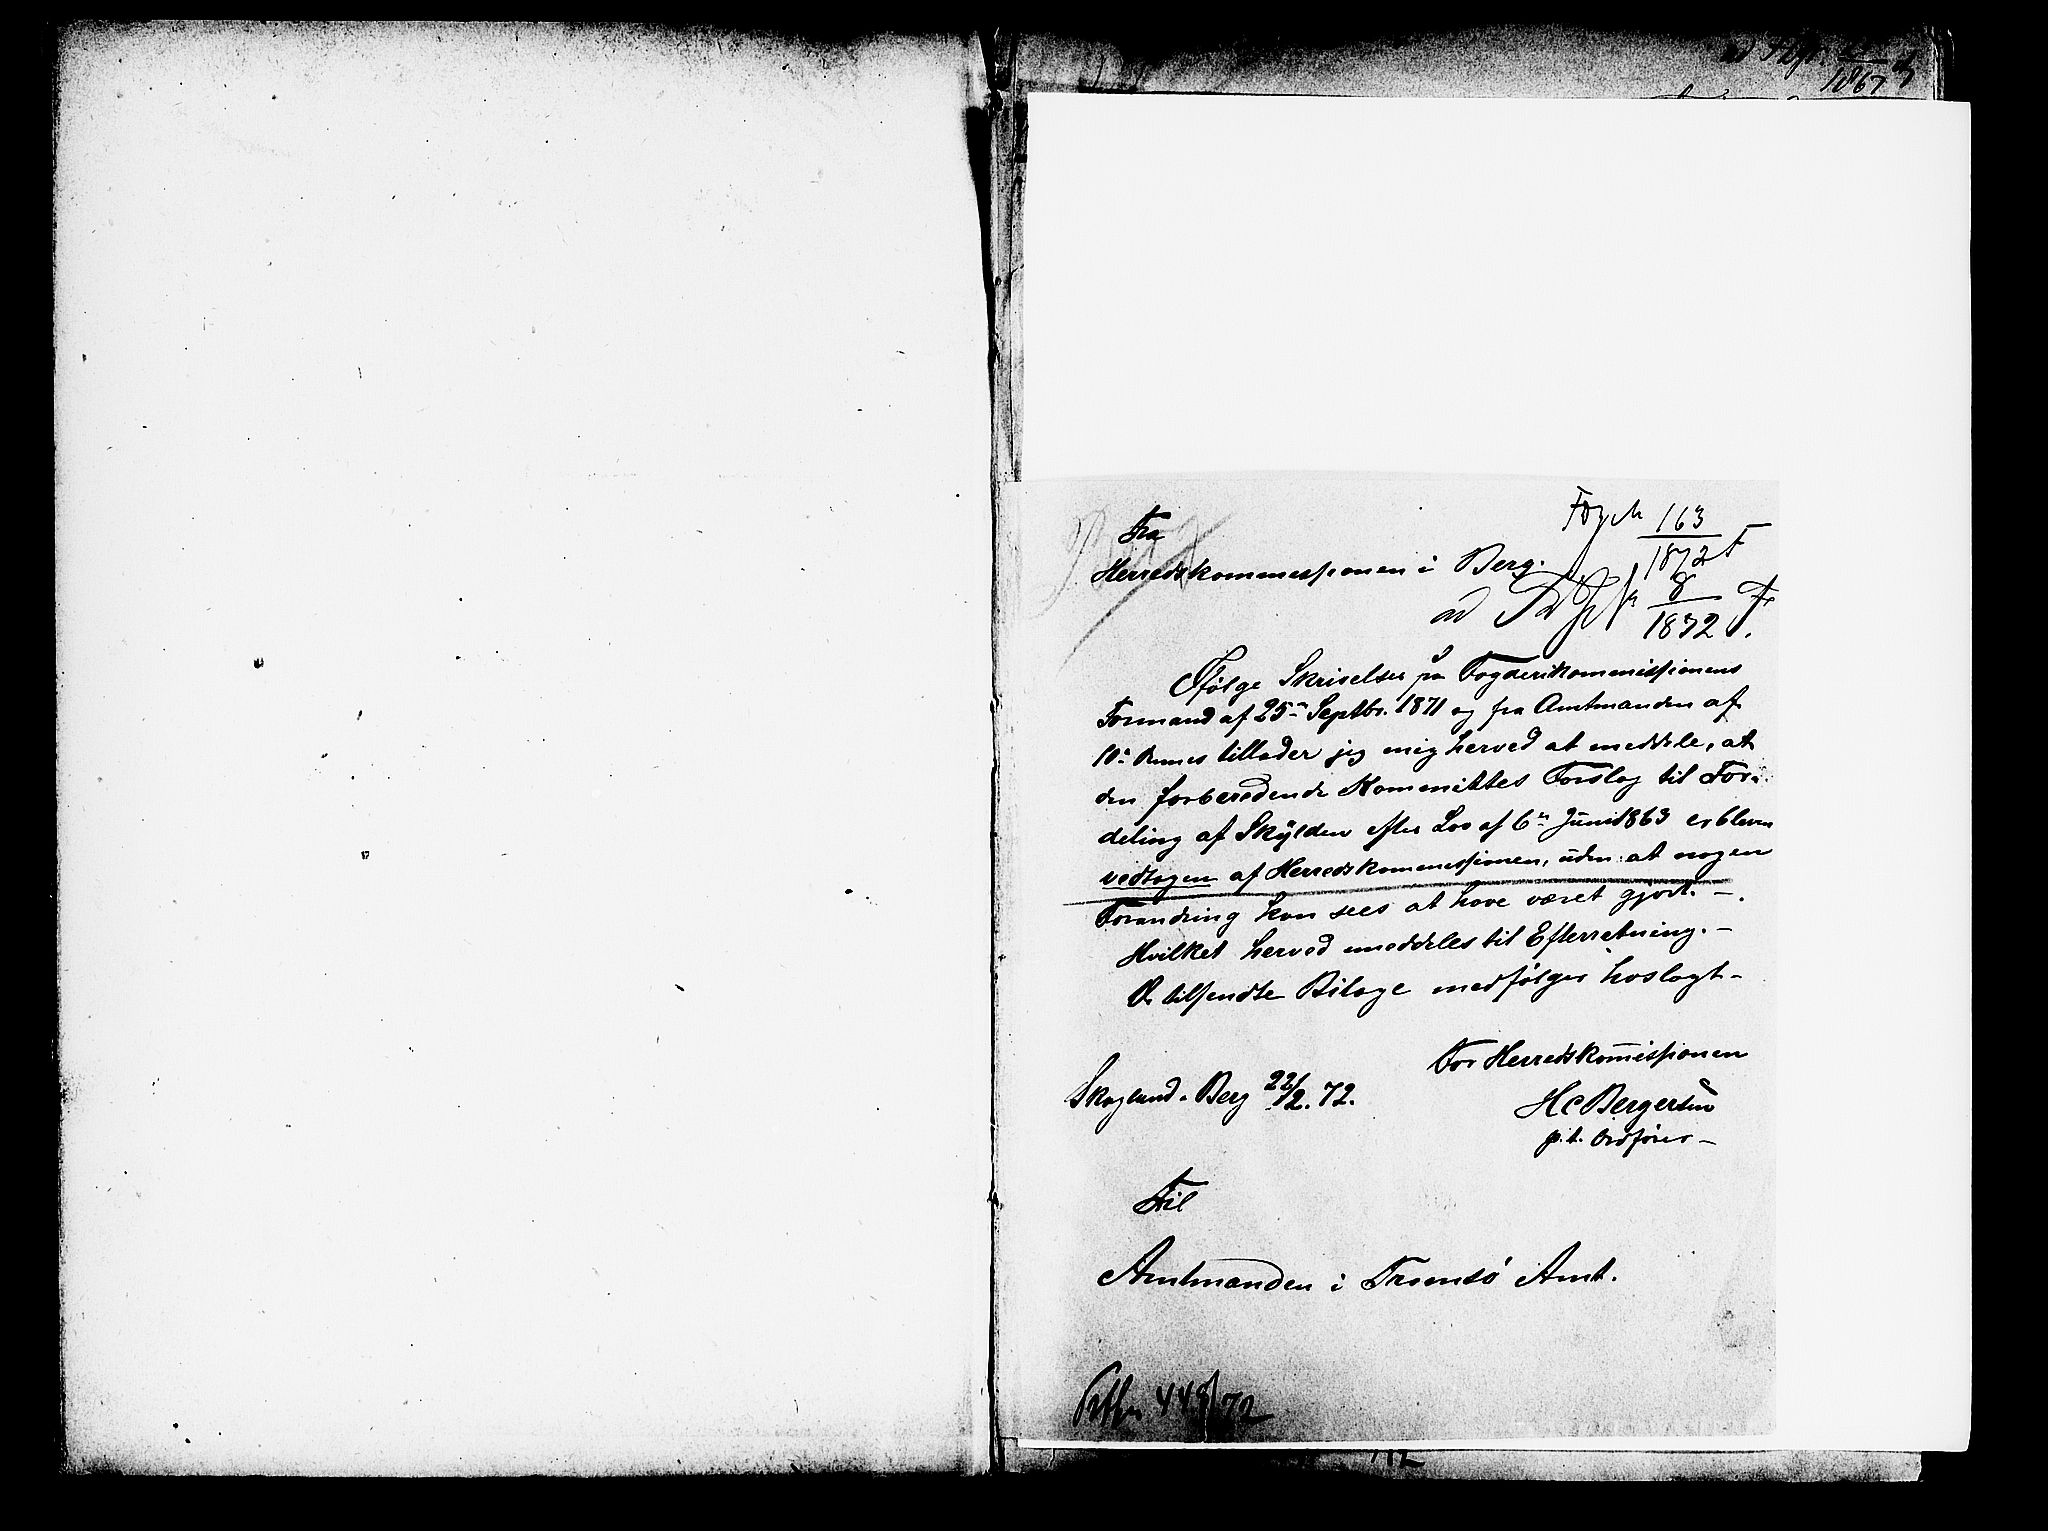 1867
Fra
Herredskommissionen i Berg.
163
1872
ad
8
1872
Ifølge Skrivelser fra Fogderikommissionens
Formand af 25de Septbr. 1871 og fra Amtmanden af
10de Dennes tillader jeg mig herved at meddele, at
den forberedende Kommittes Forslag til For-
deling af Skylden efter Lov af 6te Juni 1863 er bleven
vedtagen af Herredskommissionen, uden at nogen
Forandring kan sees at have været gjort. —
Hvilket herved meddeles til Efterretning. —
De tilsendte Bilage medfølger hoslagt —
For Herredskommissionen
Skogland. Berg 22/2. 72.
HC Bergersen
p.t. Ordfører —
Til
Amtmanden i Tromsö Amt.
448/72